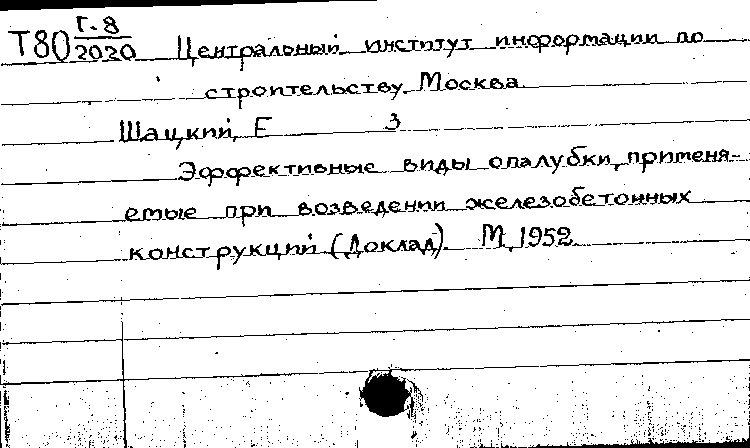 Т80 Г.8/2020 Центральный институт информации по
строительству. Москва.
Шацкий, Е З
Эффективные виды опалубки, применя-
емые при возведении железобетонных
конструкций (Доклад). М, 1952